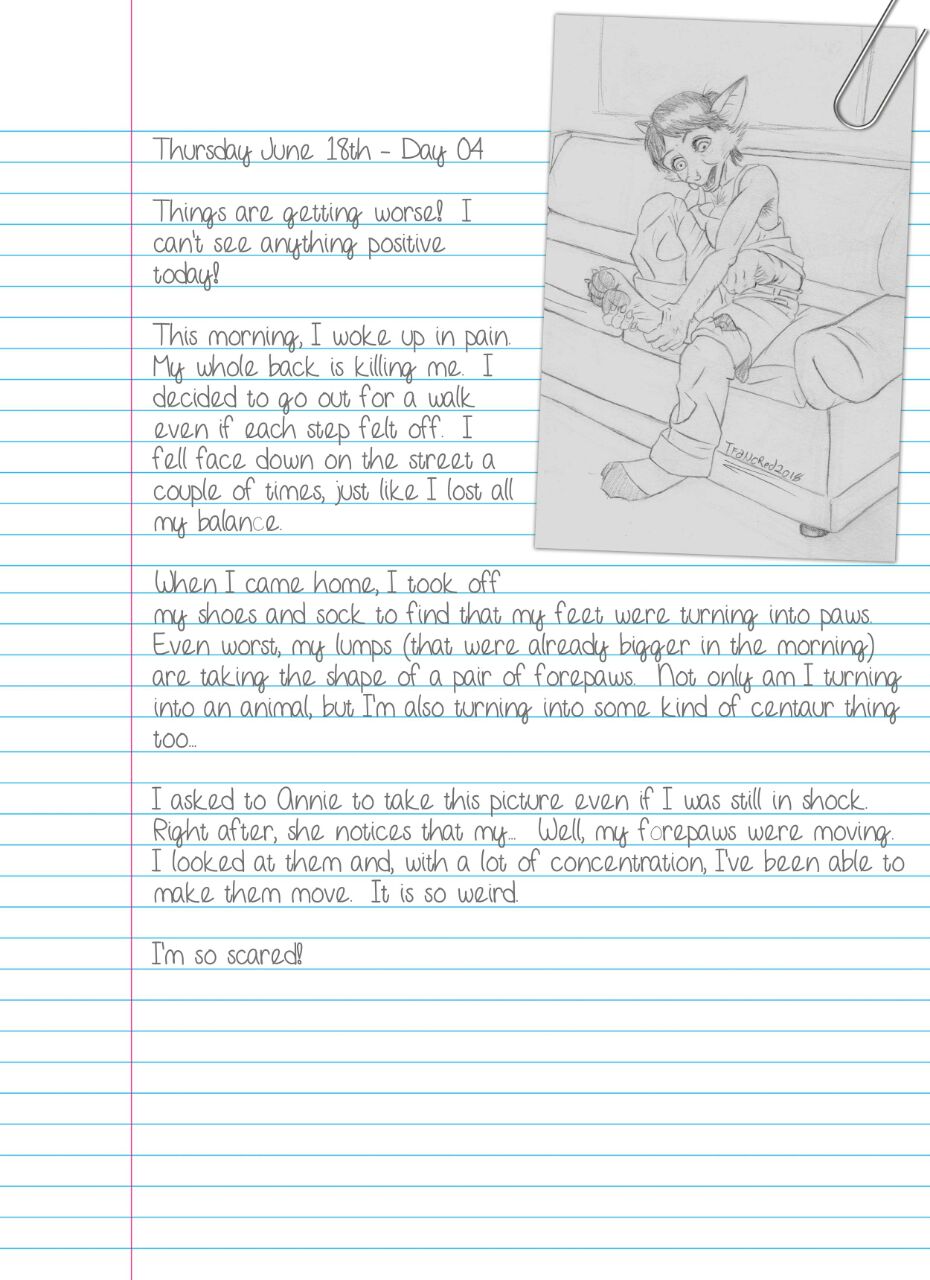 Thursday June 18th - Day 04
Things are getting worse! I
can't see anything positive
today!
This morning, I woke up in pain.
My whole back is killing me. I
decided to go out for a walk
even if each step felt off. I
fell face down on the street a
couple of times, just like I lost all
my balance.
TraNcRed2018
When I came home, I took off
my shoes and sock to find that my feet were turning into paws.
Even worst, my lumps (that were already bigger in the morning)
are taking the shape of a pair of forepaws. Not only am I turning
into an animal, but I'm also turning into some kind of centaur thing
too...
I asked to Annie to take this picture even if I was still in shock.
Right after, she notices that my... Well, my forepaws were moving.
I looked at them and, with a lot of concentration, I've been able to
make them move. It is so weird.
I'm so scared!